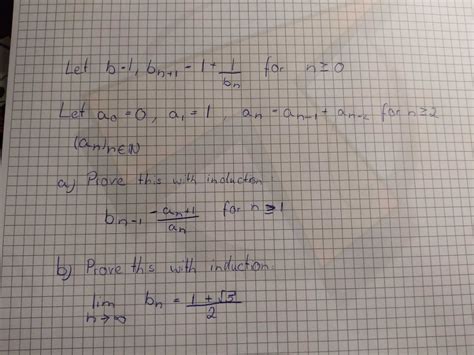 Let b=1, b_{n+1} = 1 + \frac{1}{b_n} for n ≥ 0
Let a_0 = 0, a_1 = 1, a_n = a_{n-1} + a_{n-2} for n ≥ 2
(a_n)_{n∈ℕ}
a) Prove this with induction:
b_{n-1} = \frac{a_{n+1}}{a_n} for n ≥ 1
b) Prove ths with induction:
\lim_{n→∞} b_n = \frac{1+√5}{2}